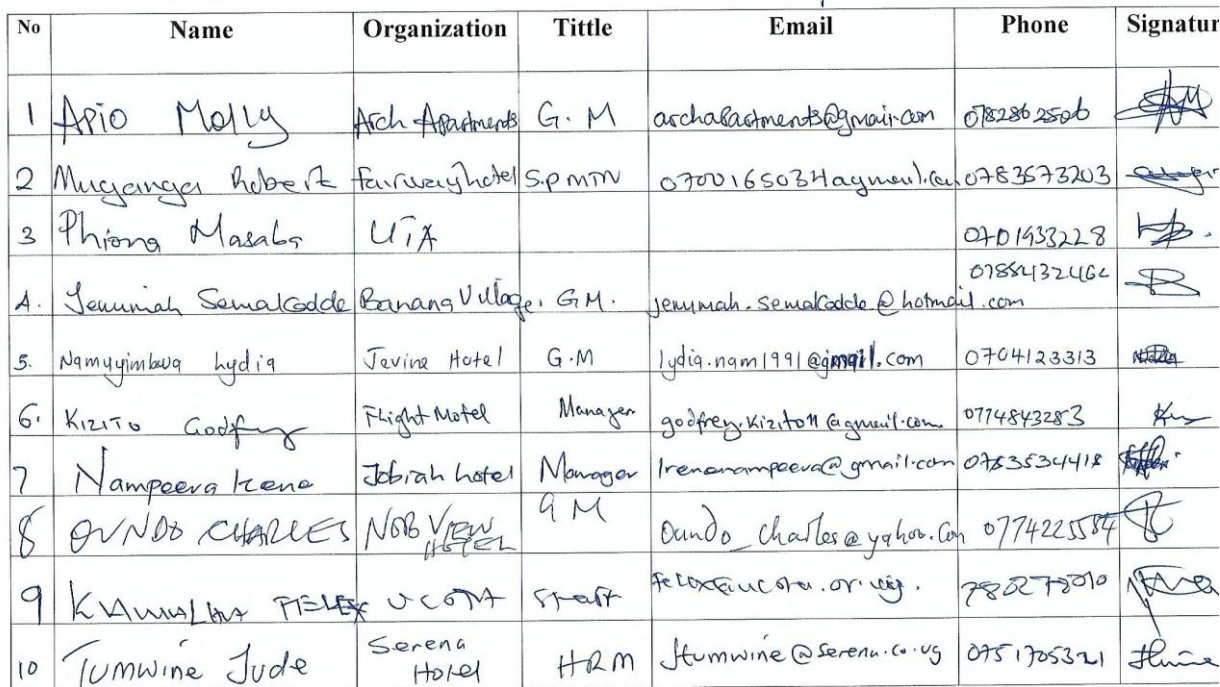 No Name Organization Tittle Email Phone Signatur
1 Apio Molly Arch Apartments G.M archapartments@gmail.com 0782862506
2 Muganga Robert fairway hotel S.P MTN 0700165034agmail.com 0783573203
3 Phiona Masaba UTA 0701933228
4. Semakadde Banana Village. G.M. @hotmail.com
5. Namuyimbwa Lydia Jevine Hotel G.M lydia.nam1991@gmail.com 0704123313
6. Kizito Godfrey Flight Motel Manager godfrey.kizito11@gmail.com 0774843283
7 Nampeera Irene Jobiah hotel Manager Irenenampeera@gmail.com 0753534418
8 OUNDO CHARLES NOB VIEW HOTEL GM Oundo_charles@yahoo.com 0774225584
9 UCOTA Staff
10 Tumwine Jude Serena Hotel HRM Jtumwine@serena.co.ug 0751705321